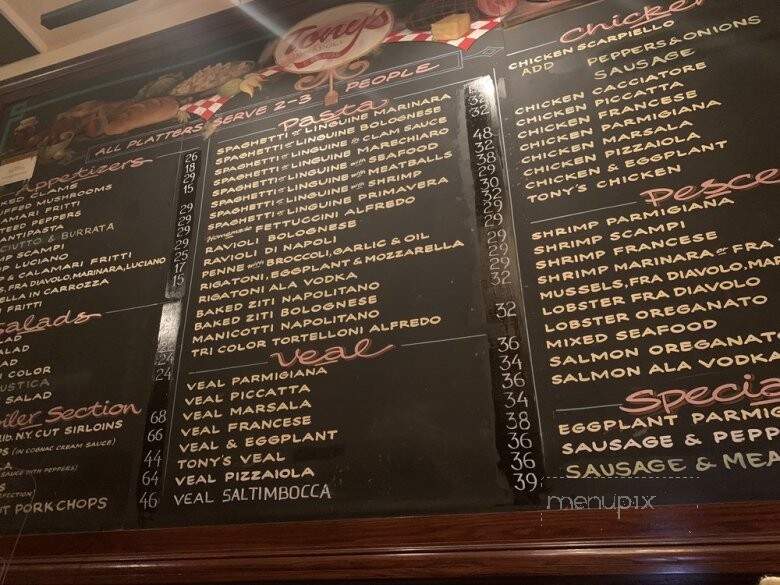 Tony's
ALL PLATTERS SERVE 2-3 PEOPLE
Appetizers
CLAMS
MUSHROOMS
FRITTI
PEPPERS
& BURRATA
SCAMPI
LUCIANO
& CALAMARI FRITTI
FRA DIAVOLO, MARINARA, LUCIANO
IN CARROZZA
FRITTI
26
18
29
15
29
29
29
29
25
17
15
Salads
COLOR
SALAD
24
24
Section
lb. NY. CUT SIRLOINS
(IN COGNAC CREAM SAUCE)
SAUCE WITH PEPPERS)
PORK CHOPS
68
66
44
64
46
Pasta
SPAGHETTI or LINGUINE MARINARA
SPAGHETTI or LINGUINE BOLOGNESE
SPAGHETTI or LINGUINE CLAM SAUCE
SPAGHETTI or LINGUINE MARECHIARO
SPAGHETTI or LINGUINE with SEAFOOD
SPAGHETTI or LINGUINE with MEATBALLS
SPAGHETTI or LINGUINE with SHRIMP
SPAGHETTI or LINGUINE PRIMAVERA
Homemade FETTUCCINI ALFREDO
RAVIOLI BOLOGNESE
RAVIOLI DI NAPOLI
PENNE with BROCCOLI, GARLIC & OIL
RIGATONI, EGGPLANT & MOZZARELLA
RIGATONI ALA VODKA
BAKED ZITI NAPOLITANO
BAKED ZITI BOLOGNESE
MANICOTTI NAPOLITANO
TRI COLOR TORTELLONI ALFREDO
32
32
48
32
38
29
30
32
29
29
29
29
32
32
Veal
VEAL PARMIGIANA
VEAL PICCATTA
VEAL MARSALA
VEAL FRANCESE
VEAL & EGGPLANT
TONY'S VEAL
VEAL PIZZAIOLA
VEAL SALTIMBOCCA
36
34
36
34
38
36
36
39
Chicken
CHICKEN SCARPIELLO
ADD PEPPERS & ONIONS
SAUSAGE
CHICKEN CACCIATORE
CHICKEN PICCATTA
CHICKEN FRANCESE
CHICKEN PARMIGIANA
CHICKEN MARSALA
CHICKEN PIZZAIOLA
CHICKEN & EGGPLANT
TONY'S CHICKEN
Pesce
SHRIMP PARMIGIANA
SHRIMP SCAMPI
SHRIMP FRANCESE
SHRIMP MARINARA or FRA
MUSSELS, FRA DIAVOLO, MAR
LOBSTER FRA DIAVOLO
LOBSTER OREGANATO
MIXED SEAFOOD
SALMON OREGANATO
SALMON ALA VODKA
Specia
EGGPLANT PARMIG
SAUSAGE & PEPP
SAUSAGE & MEA
menupix